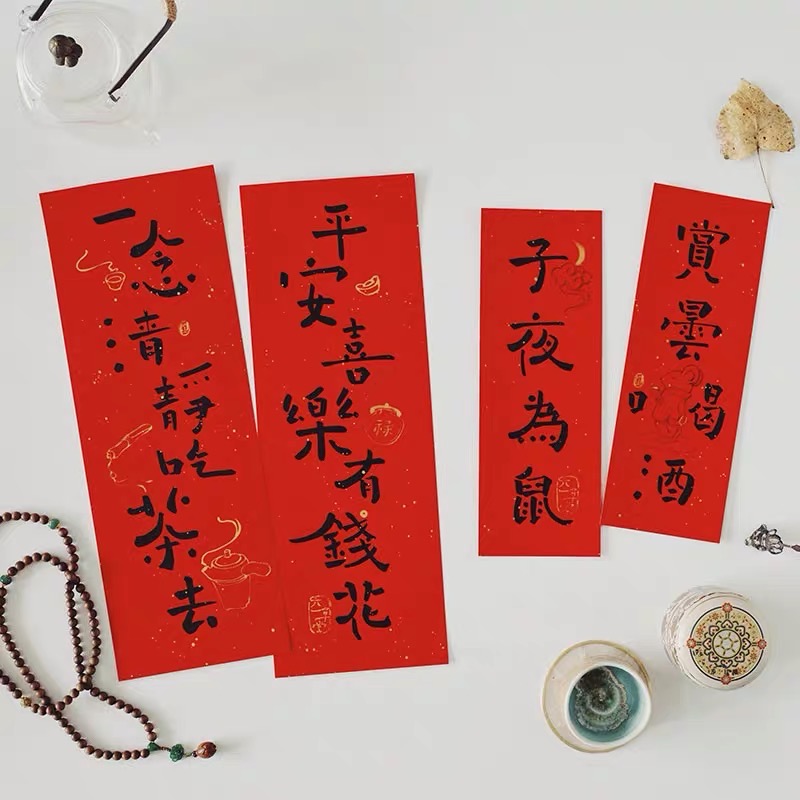 一念清靜吃茶去
平安喜樂有錢花
禄
子夜為鼠
賞曇喝酒